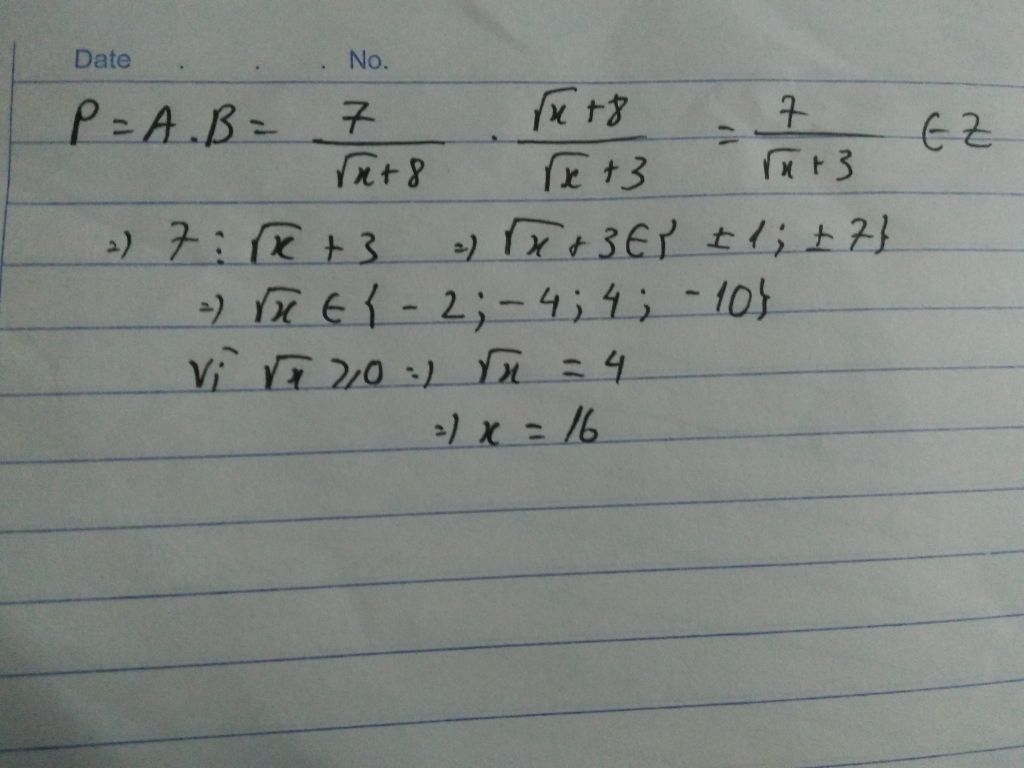 Date . . . No.
P = A . B = 7/(√x + 8) . (√x + 8)/(√x + 3) = 7/(√x + 3) ∈ Z
=) 7 ⋮ √x + 3 =) √x + 3 ∈ { ±1; ±7}
=) √x ∈ { -2; -4; 4; -10}
Vì √x ≥ 0 =) √x = 4
=) x = 16